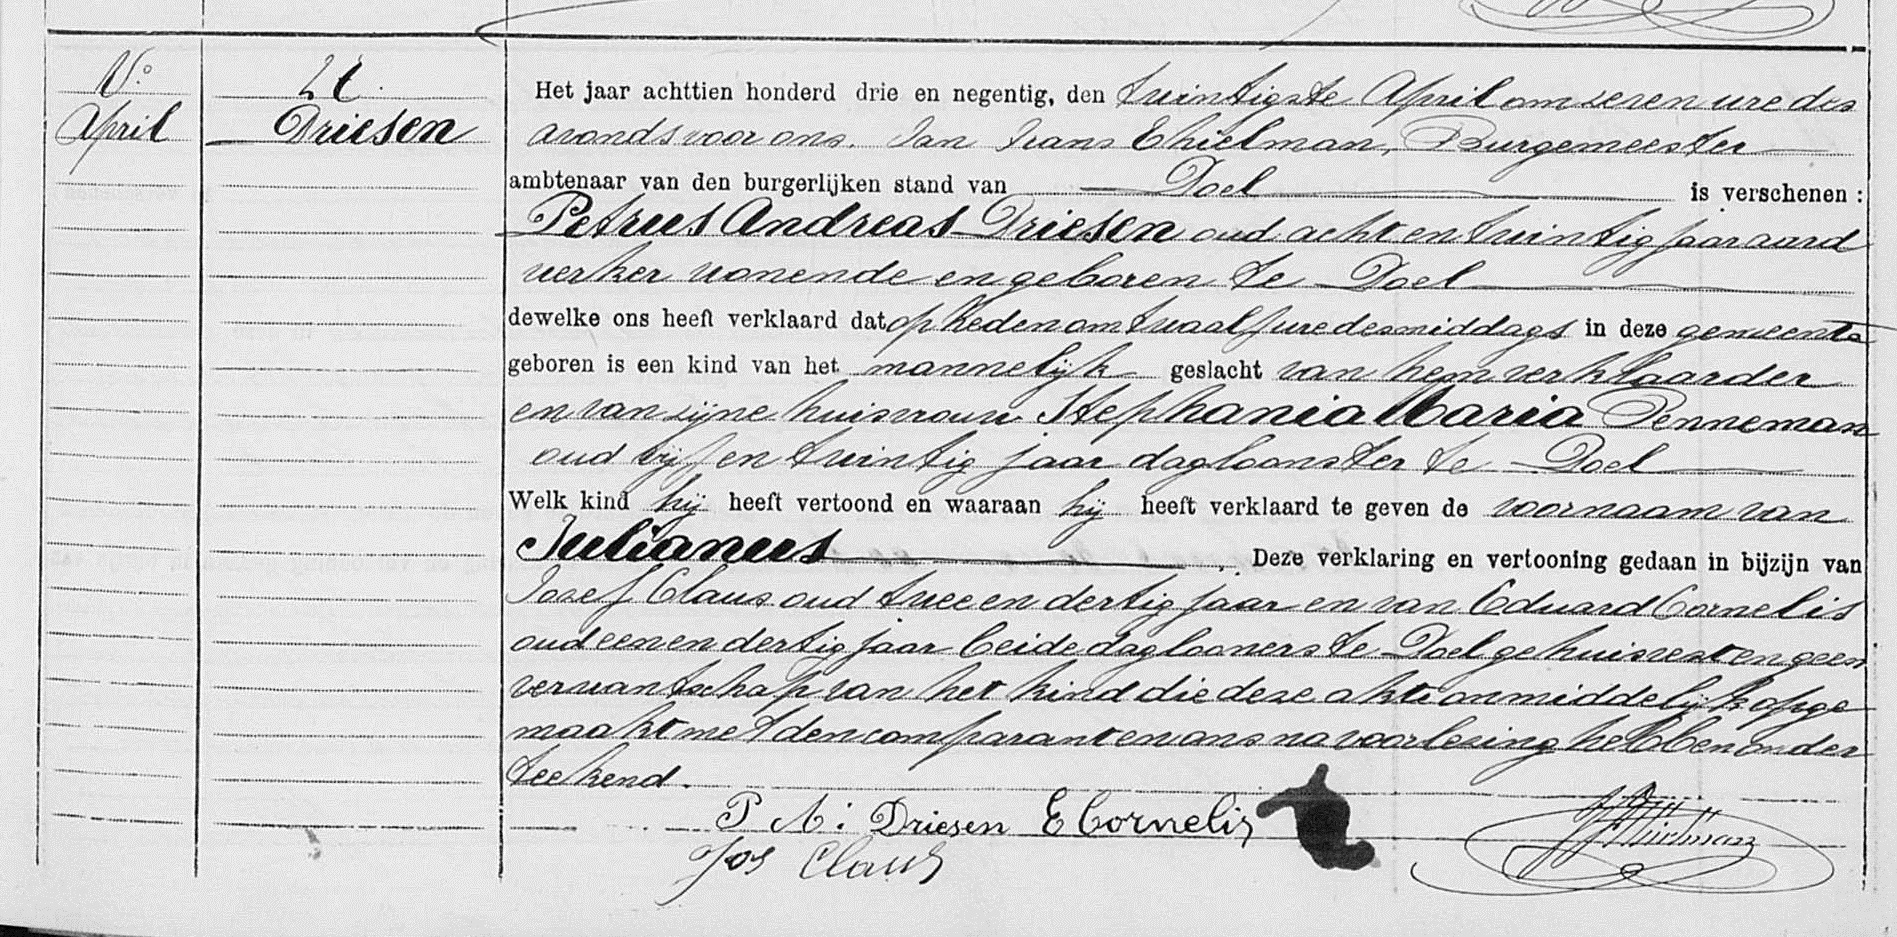 N.º 21.
April Driesen
Het jaar achttien honderd drie en negentig, den twintigste April om zeven ure des
avonds voor ons. Jan Frans Thielman, Burgemeester
ambtenaar van den burgerlijken stand van Doel is verschenen :
Petrus Andreas Driesen oud acht en twintig jaar aard
werker wonende en geboren te Doel
dewelke ons heeft verklaard dat op heden om twaalf ure des middags in deze gemeente
geboren is een kind van het mannelijk geslacht van hem verklaarder
en van zijne huisvrouw Stephania Maria Penneman
oud vijf en twintig jaar dagloonster te Doel
Welk kind hij heeft vertoond en waaraan hij heeft verklaard te geven de voornaam van
Julianus . Deze verklaring en vertooning gedaan in bijzijn van
Jozef Claus oud twee en dertig jaar en van Eduard Cornelis
oud eenen dertig jaar beide daglooners te Doel gehuisvest en geen
verwantschap van het kind die deze akte onmiddelijk opge
maakt met den comparant en ons na voorlezing hebben onder
teekend.
P A: Driesen E Cornelis
Jos Claus JF Thielman